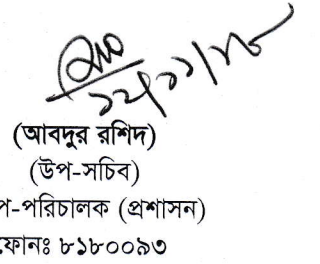 ১৮/১১/১৮
(আবদুর রশিদ)
(উপ-সচিব)
প-পরিচালক (প্রশাসন)
ফোনঃ ৮১৮০০৯৩